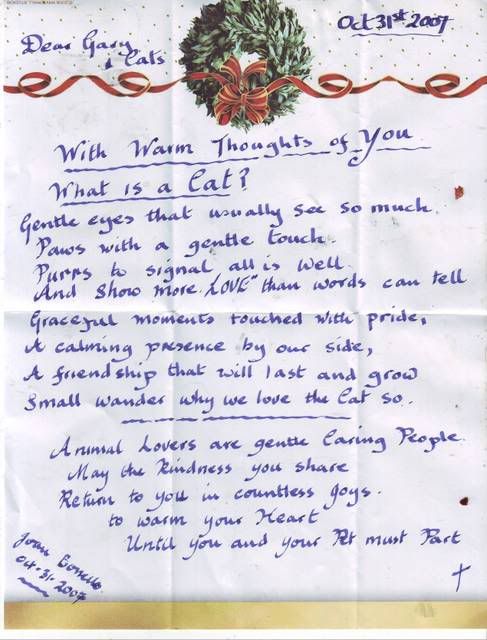 Oct 31st 2007
Dear Gary
& Cats
With Warm Thoughts of You
What is a Cat?
Gentle eyes that usually see so much.
Paws with a gentle touch.
Purrs to signal all is well.
And show more "LOVE" than words can tell
Graceful moments touched with pride,
A calming presence by our side,
A friendship that will last and grow
Small wander why we love the Cat so.
Animal Lovers are gentle Caring People.
May the Kindness you share
Return to you in countless joys.
to warm your Heart
Until you and your Pet must Part
Joan
Oct. 31. 2007